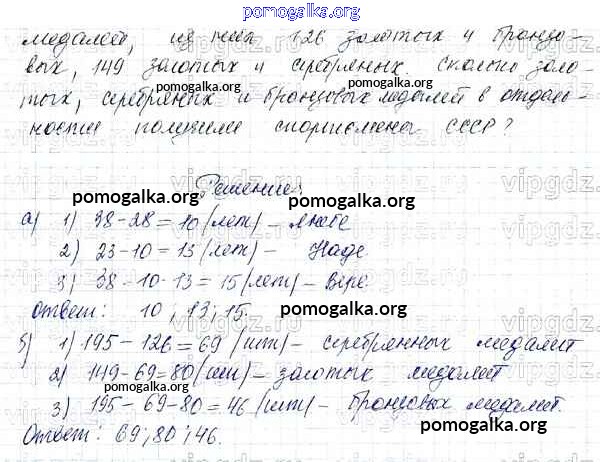 pomogalka.org
медалей, из них 126 золотых и бронзо-
вых, 149 золотых и серебряных. Сколько золо-
тых, серебряных и бронзовых медалей в отдель-
ности получили спортсмены СССР?
pomogalka.org
Решение:
pomogalka.org
а) 1) 38-28=10 (лет) – Любе
2) 23-10=13 (лет) – Наде
3) 38-10-13=15 (лет) – Вере
Ответ: 10; 13; 15.
pomogalka.org
б) 1) 195-126=69 (шт) – серебрянных медалей
2) 149-69=80 (шт) – золотых медалей
pomogalka.org
3) 195-69-80=46 (шт) – бронзовых медалей.
Ответ: 69; 80; 46.
pomogalka.org